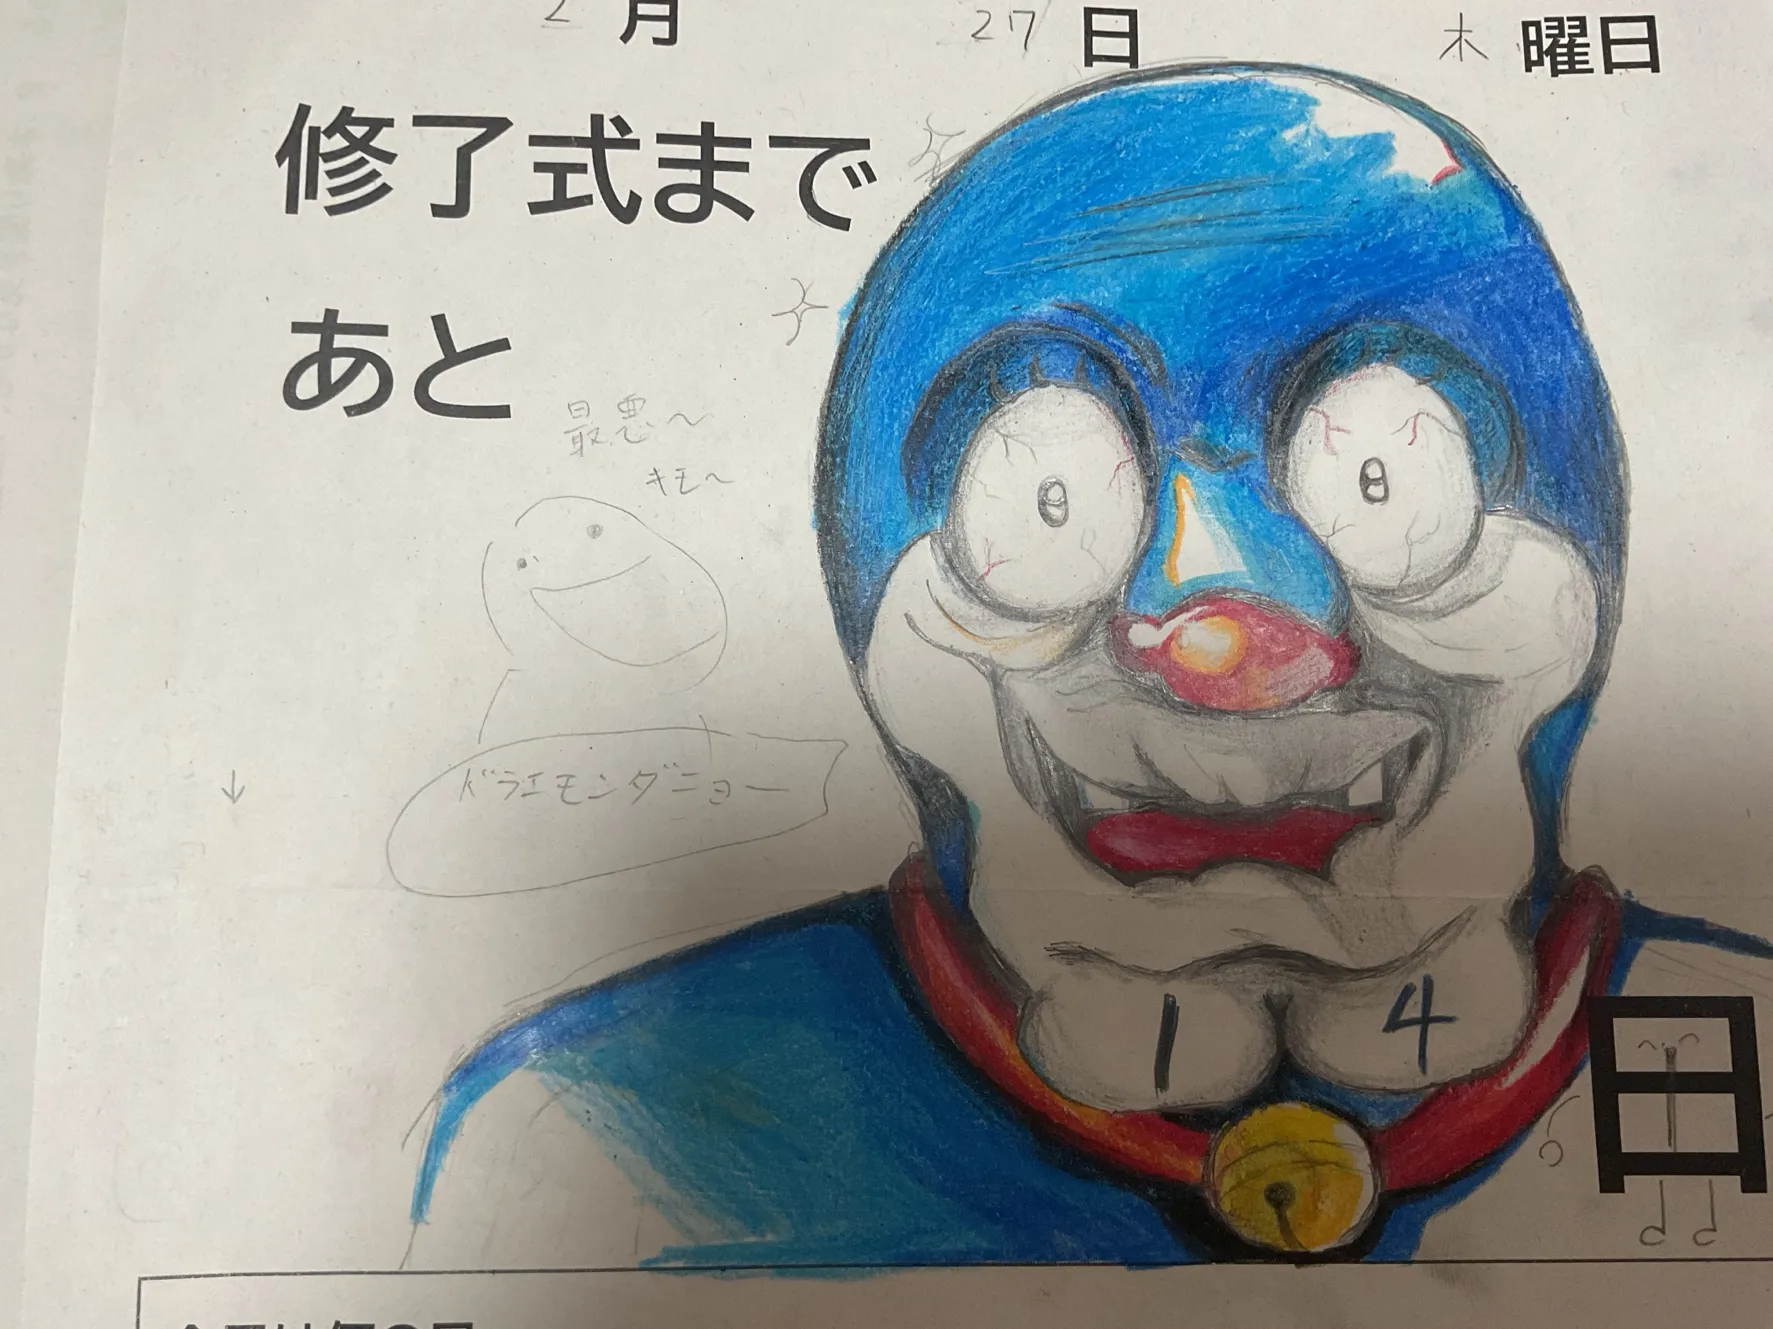 2月 27日 木曜日
修了式まで
あと
最悪〜
キモ〜
ドラエモンダニョー
14日